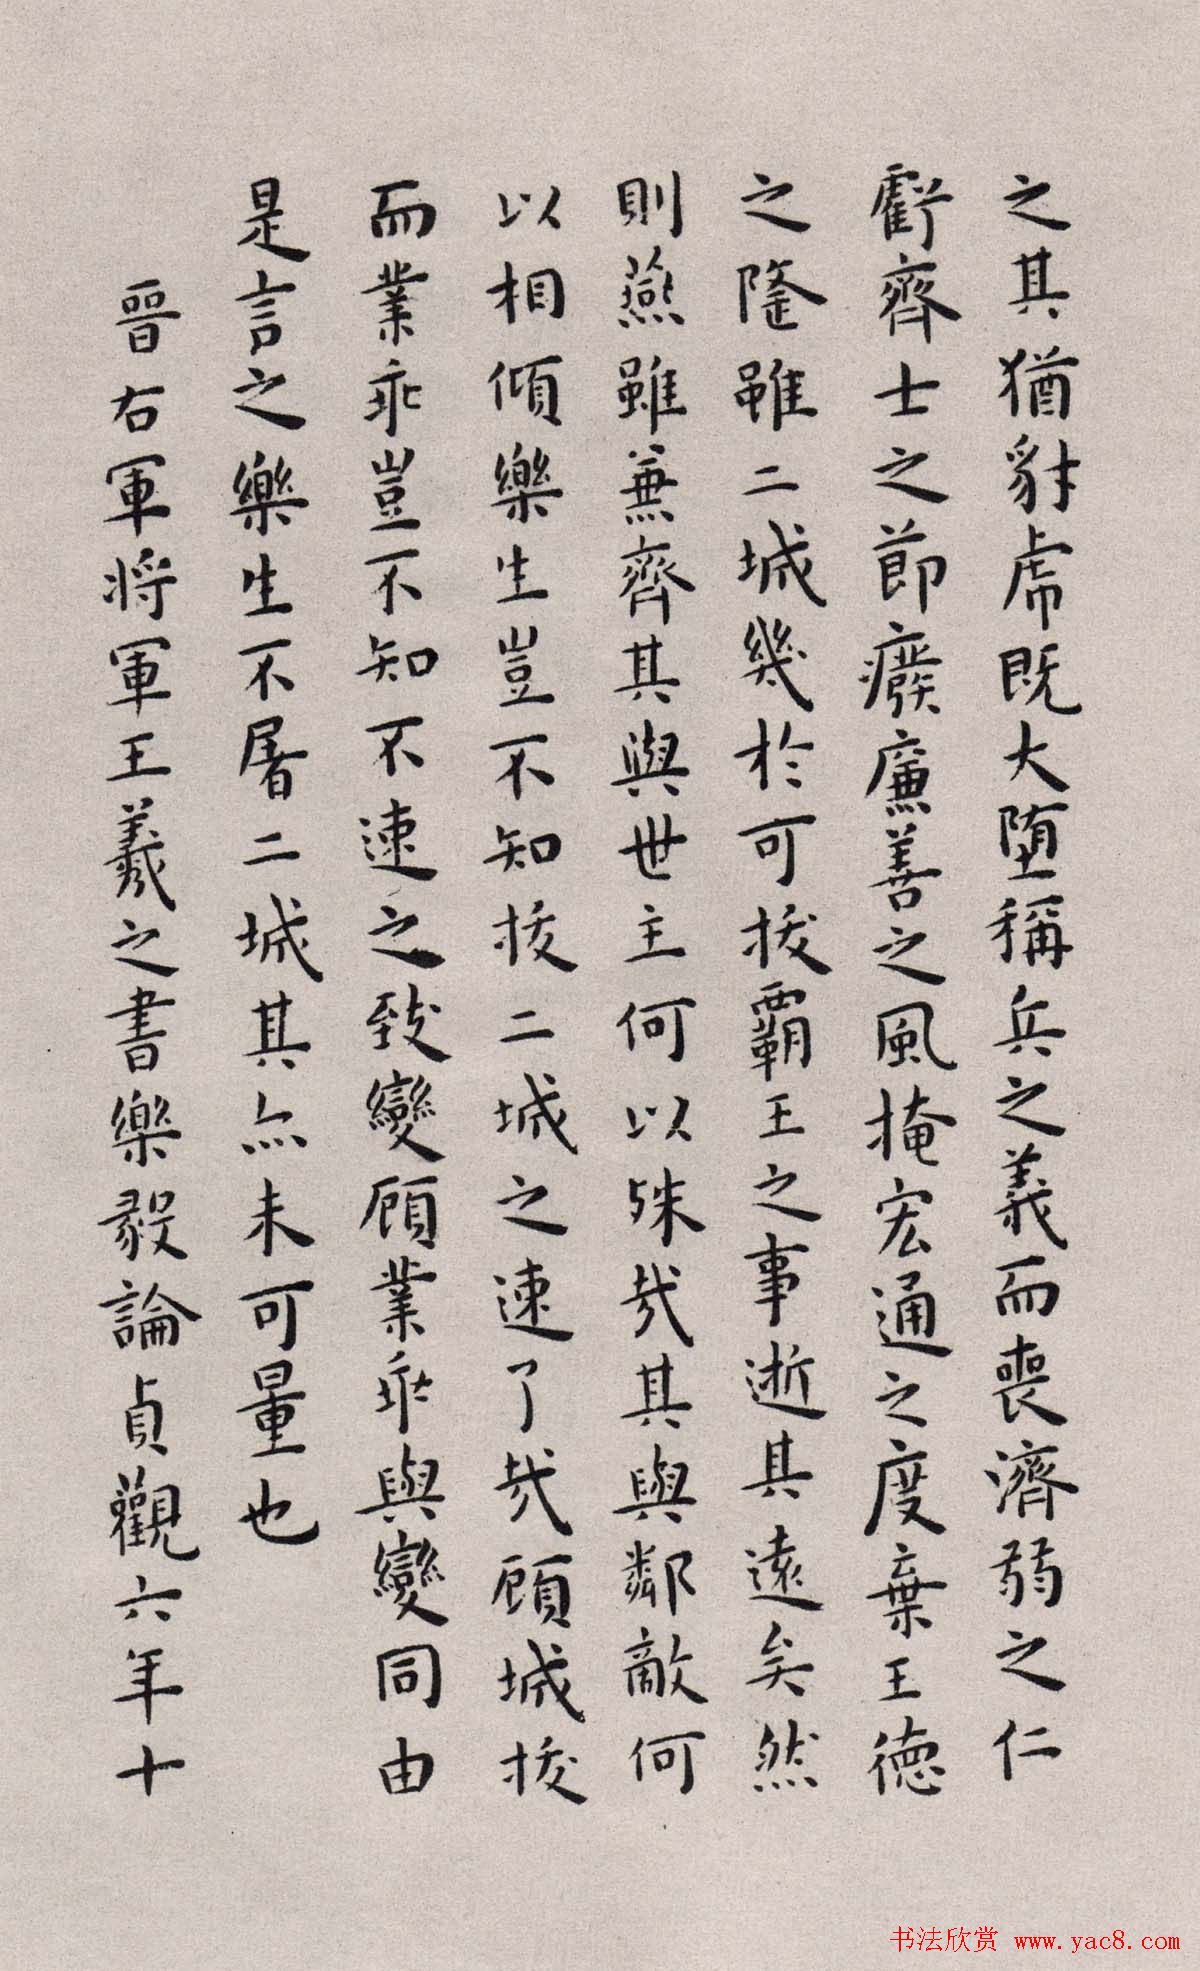 之其猶豺虎既大堕稱兵之義而喪濟弱之仁
虧齊士之節癈廉善之風掩宏通之度棄王德
之隆雖二城幾於可拔覇王之事逝其遠矣然
則燕雖兼齊其與世主何以殊哉其與鄰敵何
以相傾樂生豈不知拔二城之速了哉顧城拔
而業乖豈不知不速之致變顧業乖與變同由
是言之樂生不屠二城其亦未可量也
晉右軍將軍王羲之書樂毅論貞觀六年十
书法欣赏 www.yac8.com